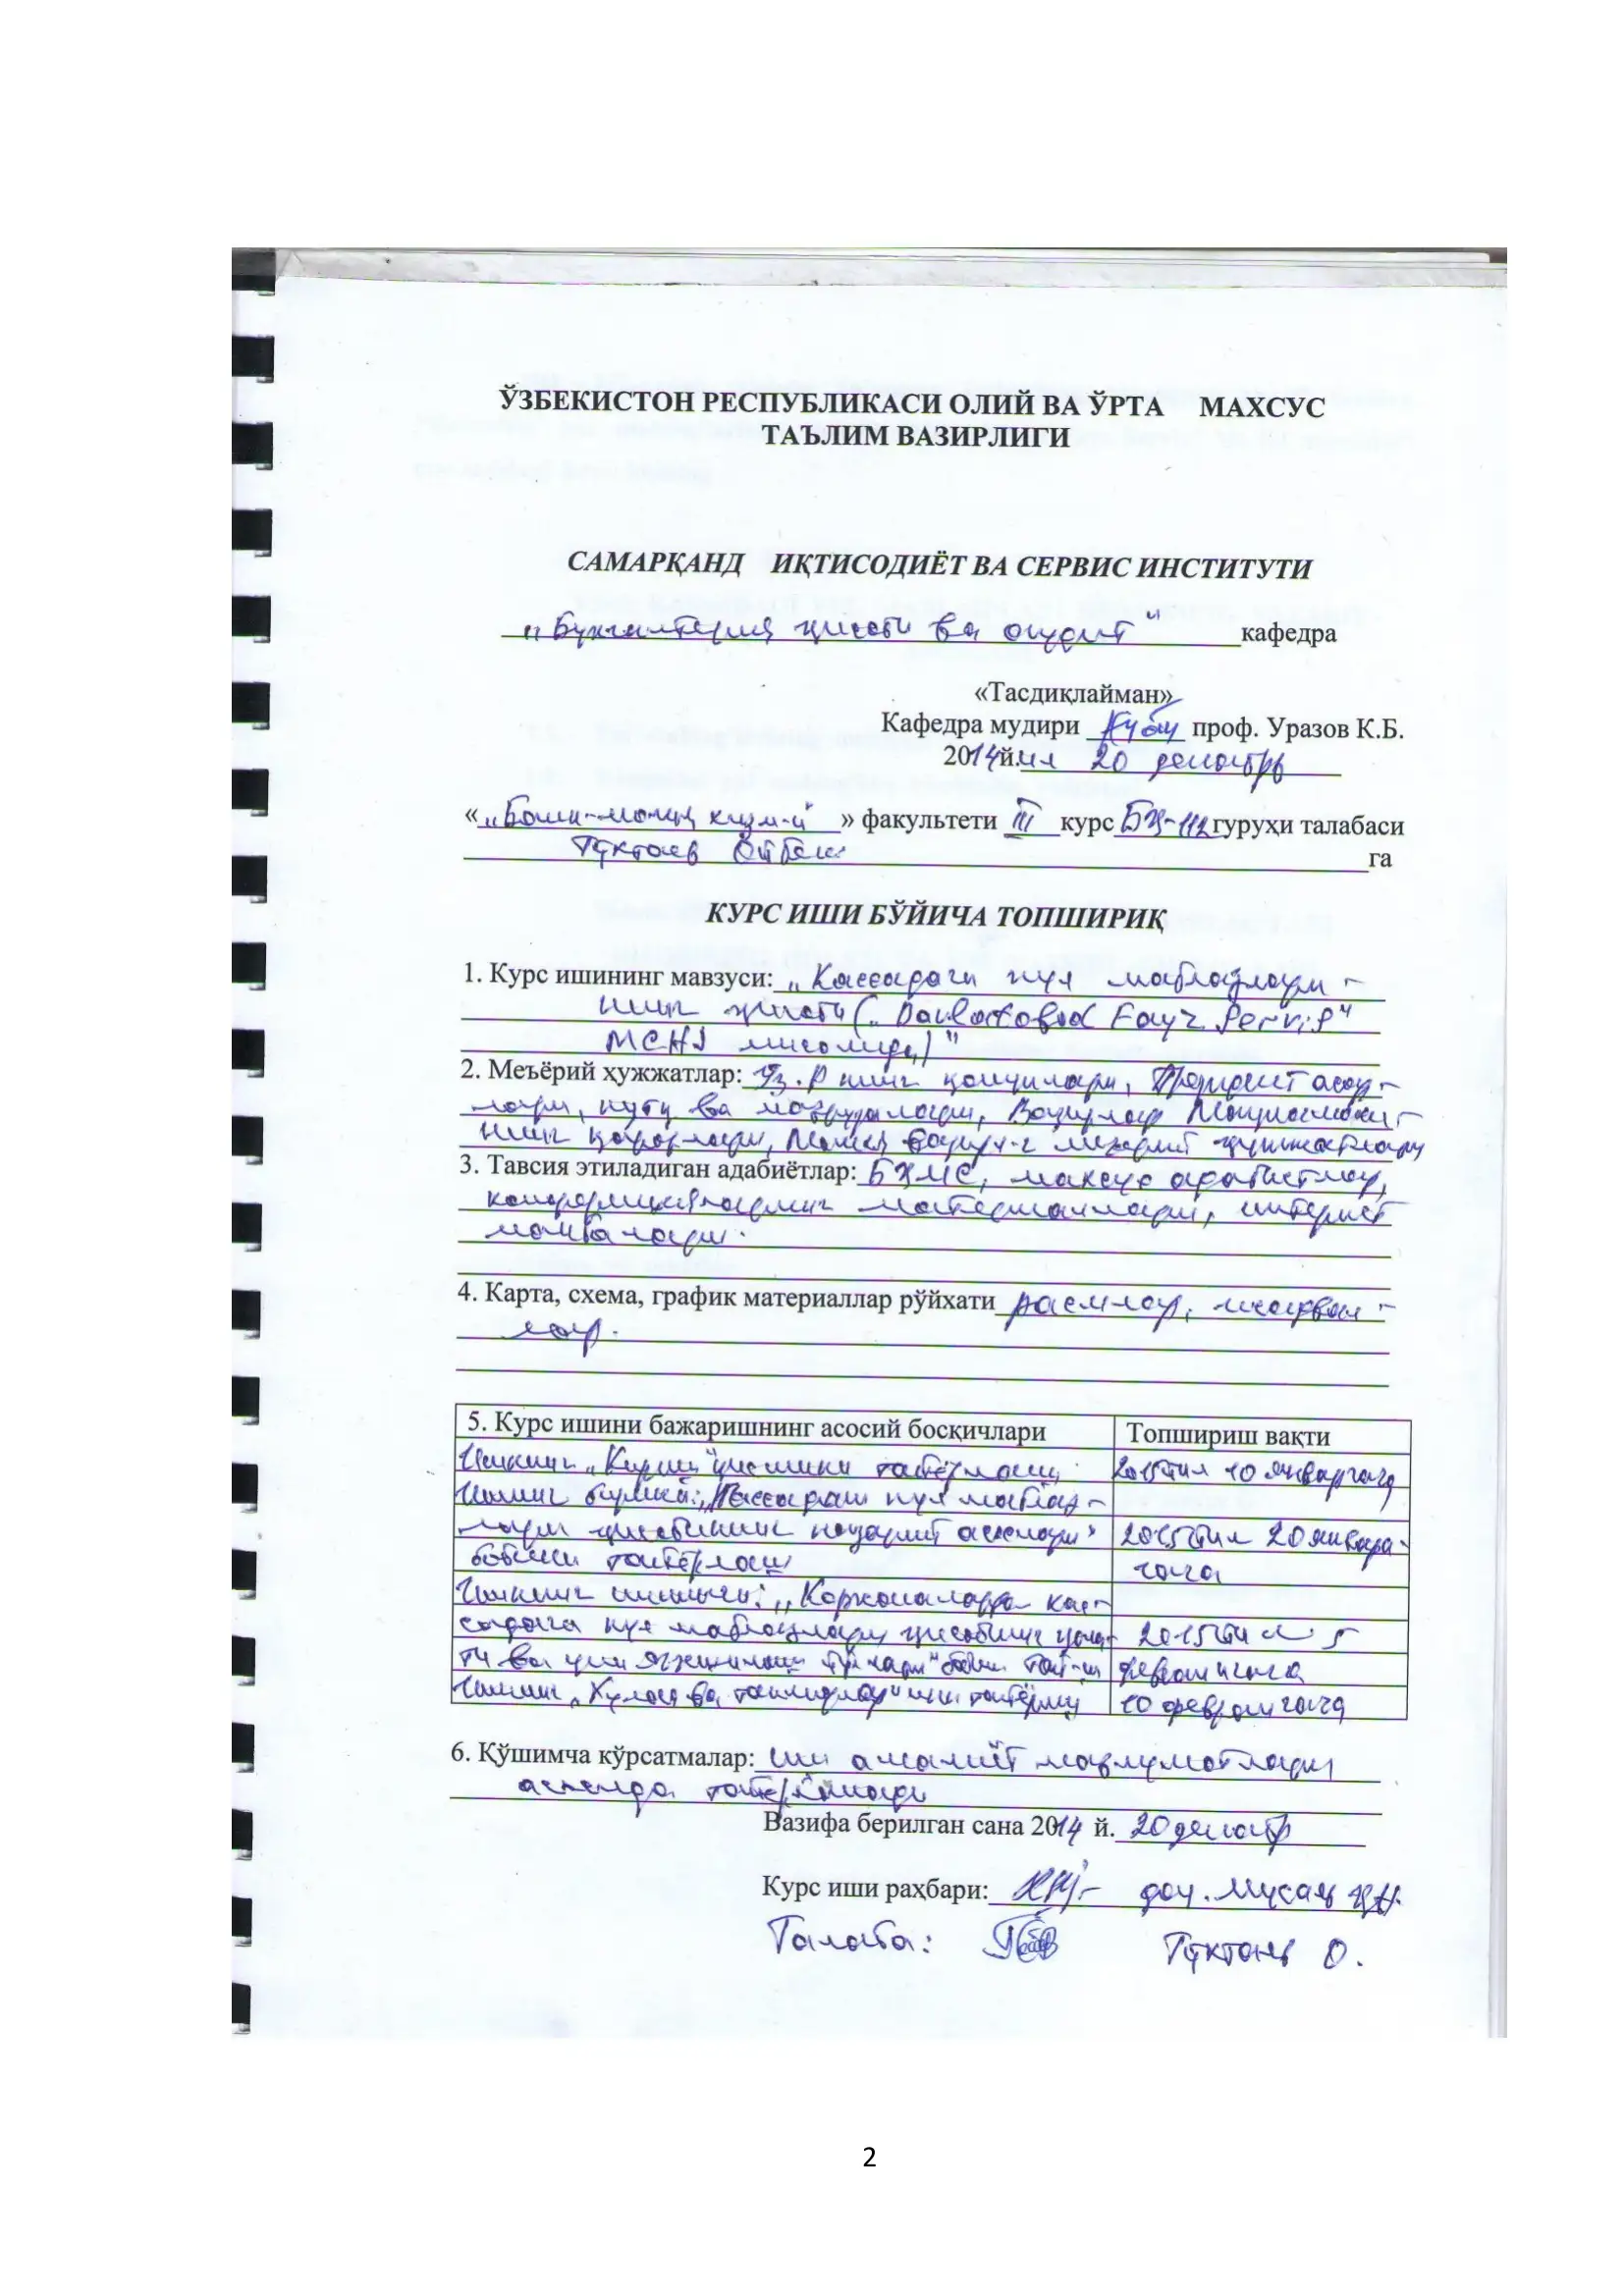 ЎЗБЕКИСТОН РЕСПУБЛИКАСИ ОЛИЙ ВА ЎРТА МАХСУС
ТАЪЛИМ ВАЗИРЛИГИ
САМАРҚАНД ИҚТИСОДИЁТ ВА СЕРВИС ИНСТИТУТИ
„Бухгалтерия ҳисоби ва аудит" кафедра
«Тасдиқлайман»
Кафедра мудири проф. Уразов К.Б.
2014й. 20 декабрь
« » факультети III курс БҲ-112 гуруҳи талабаси
Тўхтаев Ойбек га
КУРС ИШИ БЎЙИЧА ТОПШИРИҚ
1. Курс ишининг мавзуси: „Кассадаги пул маблағлари-
нинг ҳисоби („Davlatobod Fayz Servis"
МCHJ мисолида)"
2. Меъёрий ҳужжатлар: Ўз.Р нинг қонунлари, Президент асар-
лари, нутқ ва маърузалари, Вазирлар Маҳкамаси-
нинг қарорлари, Молия меъёрий ҳужжатлари
3. Тавсия этиладиган адабиётлар: БҲМС, махсус адабиётлар,
конференцияларнинг материаллари, интернет
манбалари.
4. Карта, схема, график материаллар рўйхати расмлар, жадвал-
лар.
5. Курс ишини бажаришнинг асосий босқичлари Топшириш вақти
Ишнинг „Кириш" қисмини тайёрлаш 2015 йил 10 январгача
Ишнинг биринчи: „Кассадаги пул маблағ-
лари ҳисобининг назарий асослари" 2015 йил 20 январ-
бобини тайёрлаш гача
Ишнинг иккинчи: „Корхоналарда кас-
садаги пул маблағлари ҳисобининг ҳола- 2015 йил 5
ти ва уни яхшилаш йўллари" февралгача
Ишнинг „Хулоса ва таклифлар" 10 февралгача
6. Қўшимча кўрсатмалар: иш амалиёт маълумотлари
асосида тайёрланади
Вазифа берилган сана 2014 й. 20 декабр
Курс иши раҳбари: доц.
Талаба: Тўхтаев О.
2